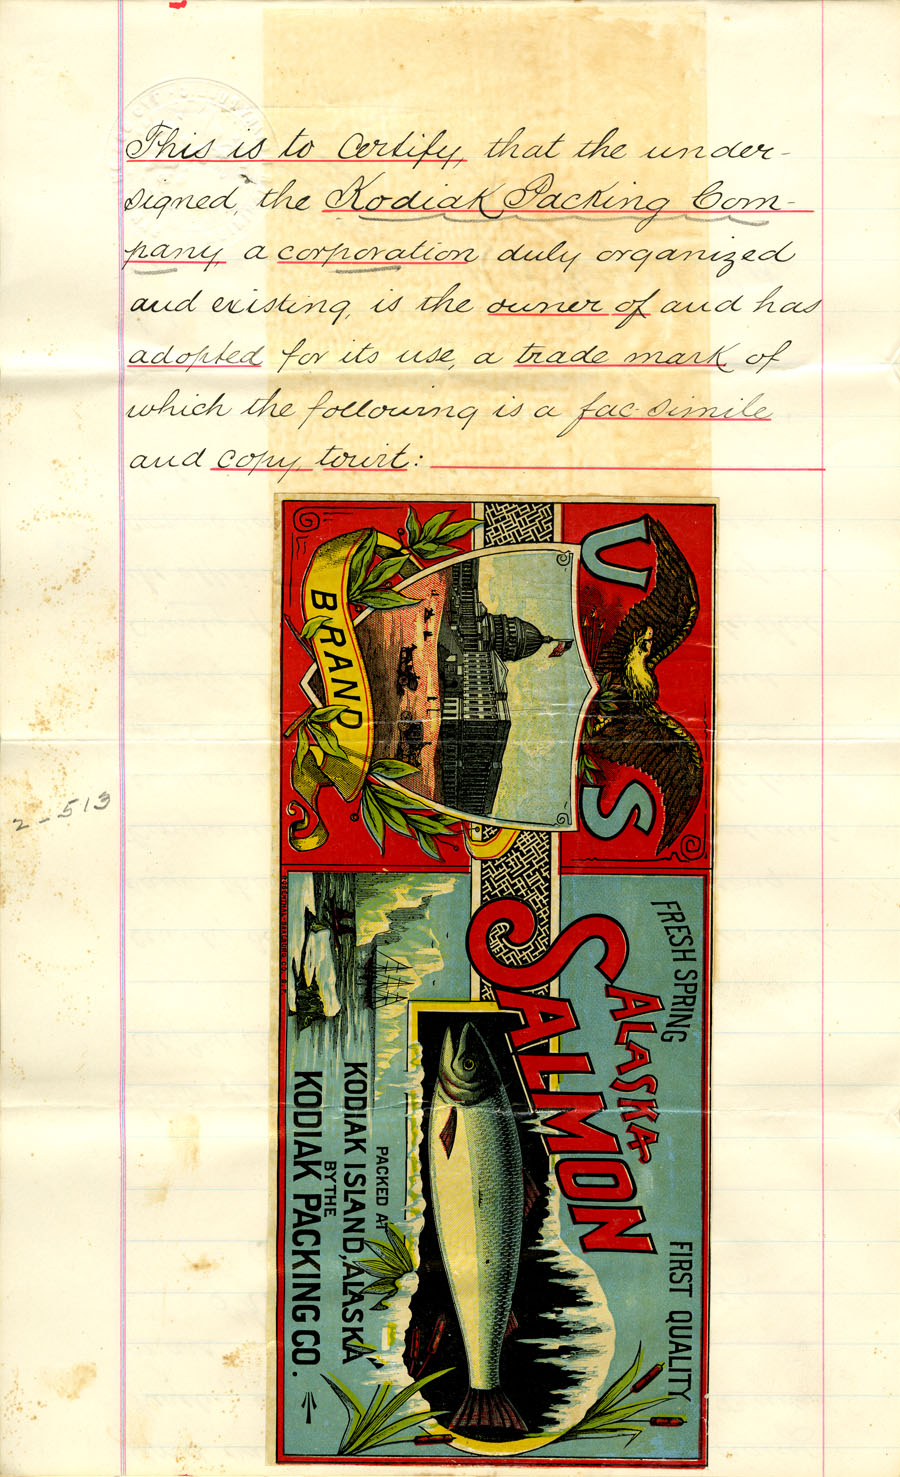 This is to certify, that the under-
signed, the Kodiak Packing Com-
pany, a corporation duly organized
and existing, is the owner of and has
adopted for its use, a trade mark of
which the following is a fac-simile
and copy, towit:
2-513
U S
BRAND
FRESH SPRING
FIRST QUALITY
ALASKA
SALMON
PACKED AT
KODIAK ISLAND, ALASKA
BY THE
KODIAK PACKING CO.